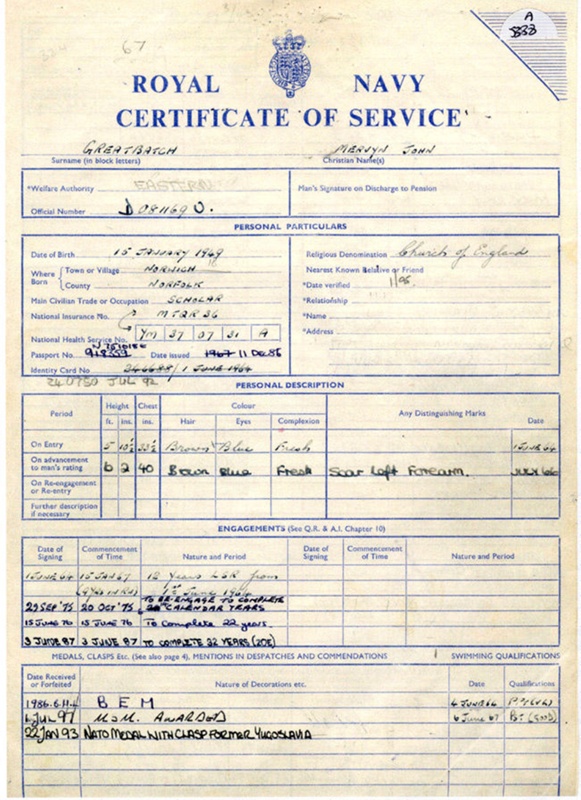 A
5838
67
ROYAL NAVY
CERTIFICATE OF SERVICE
GREATBATCH MERVYN JOHN
Surname (in block letters) Christian Name(s)
*Welfare Authority EASTERN Man's Signature on Discharge to Pension
Official Number D 081169 U.
PERSONAL PARTICULARS
Date of Birth 15 JANUARY 1949 Religious Denomination Church of England
Where Born { Town or Village NORWICH Nearest Known Relative or Friend
County NORFOLK *Date verified 1/95
Main Civilian Trade or Occupation SCHOLAR *Relationship
National Insurance No. MTQR 36 *Name
National Health Service No. YM 37 07 31 A *Address
Passport No. 918359 Date issued 1967 11 Dec 86
Identity Card No. 246688 / 1 JUNE 1964
240750 JUL 92
PERSONAL DESCRIPTION
Period Height Chest Colour Any Distinguishing Marks Date
ft. ins. ins. Hair Eyes Complexion
On Entry 5 10½ 33½ Brown Blue Fresh 1 June 64
On advancement to man's rating 6 2 40 Brown Blue Fresh Scar Left Forearm. JULY 66
On Re-engagement or Re-entry
Further description if necessary
ENGAGEMENTS (See Q.R. & A.I. Chapter 10)
Date of Signing Commencement of Time Nature and Period Date of Signing Commencement of Time Nature and Period
1 JUNE 64 15 JAN 67 12 Years from
1st June 1964
TO RE-ENGAGE TO COMPLETE
29 SEP '75 20 OCT '75 CALENDAR YEARS
15 JUNE 76 15 JUNE 76 To complete 22 years.
3 JUNE 87 3 JUNE 87 TO COMPLETE 32 YEARS (2OE)
MEDALS, CLASPS Etc. (See also page 4), MENTIONS IN DESPATCHES AND COMMENDATIONS SWIMMING QUALIFICATIONS
Date Received or Forfeited Nature of Decorations etc. Date Qualifications
1986.6.11 BEM 4 JUNE 64
JUL 97 MSM. AWARDED 6 June 67
22 JAN 93 NATO MEDAL WITH CLASP FORMER YUGOSLAVIA